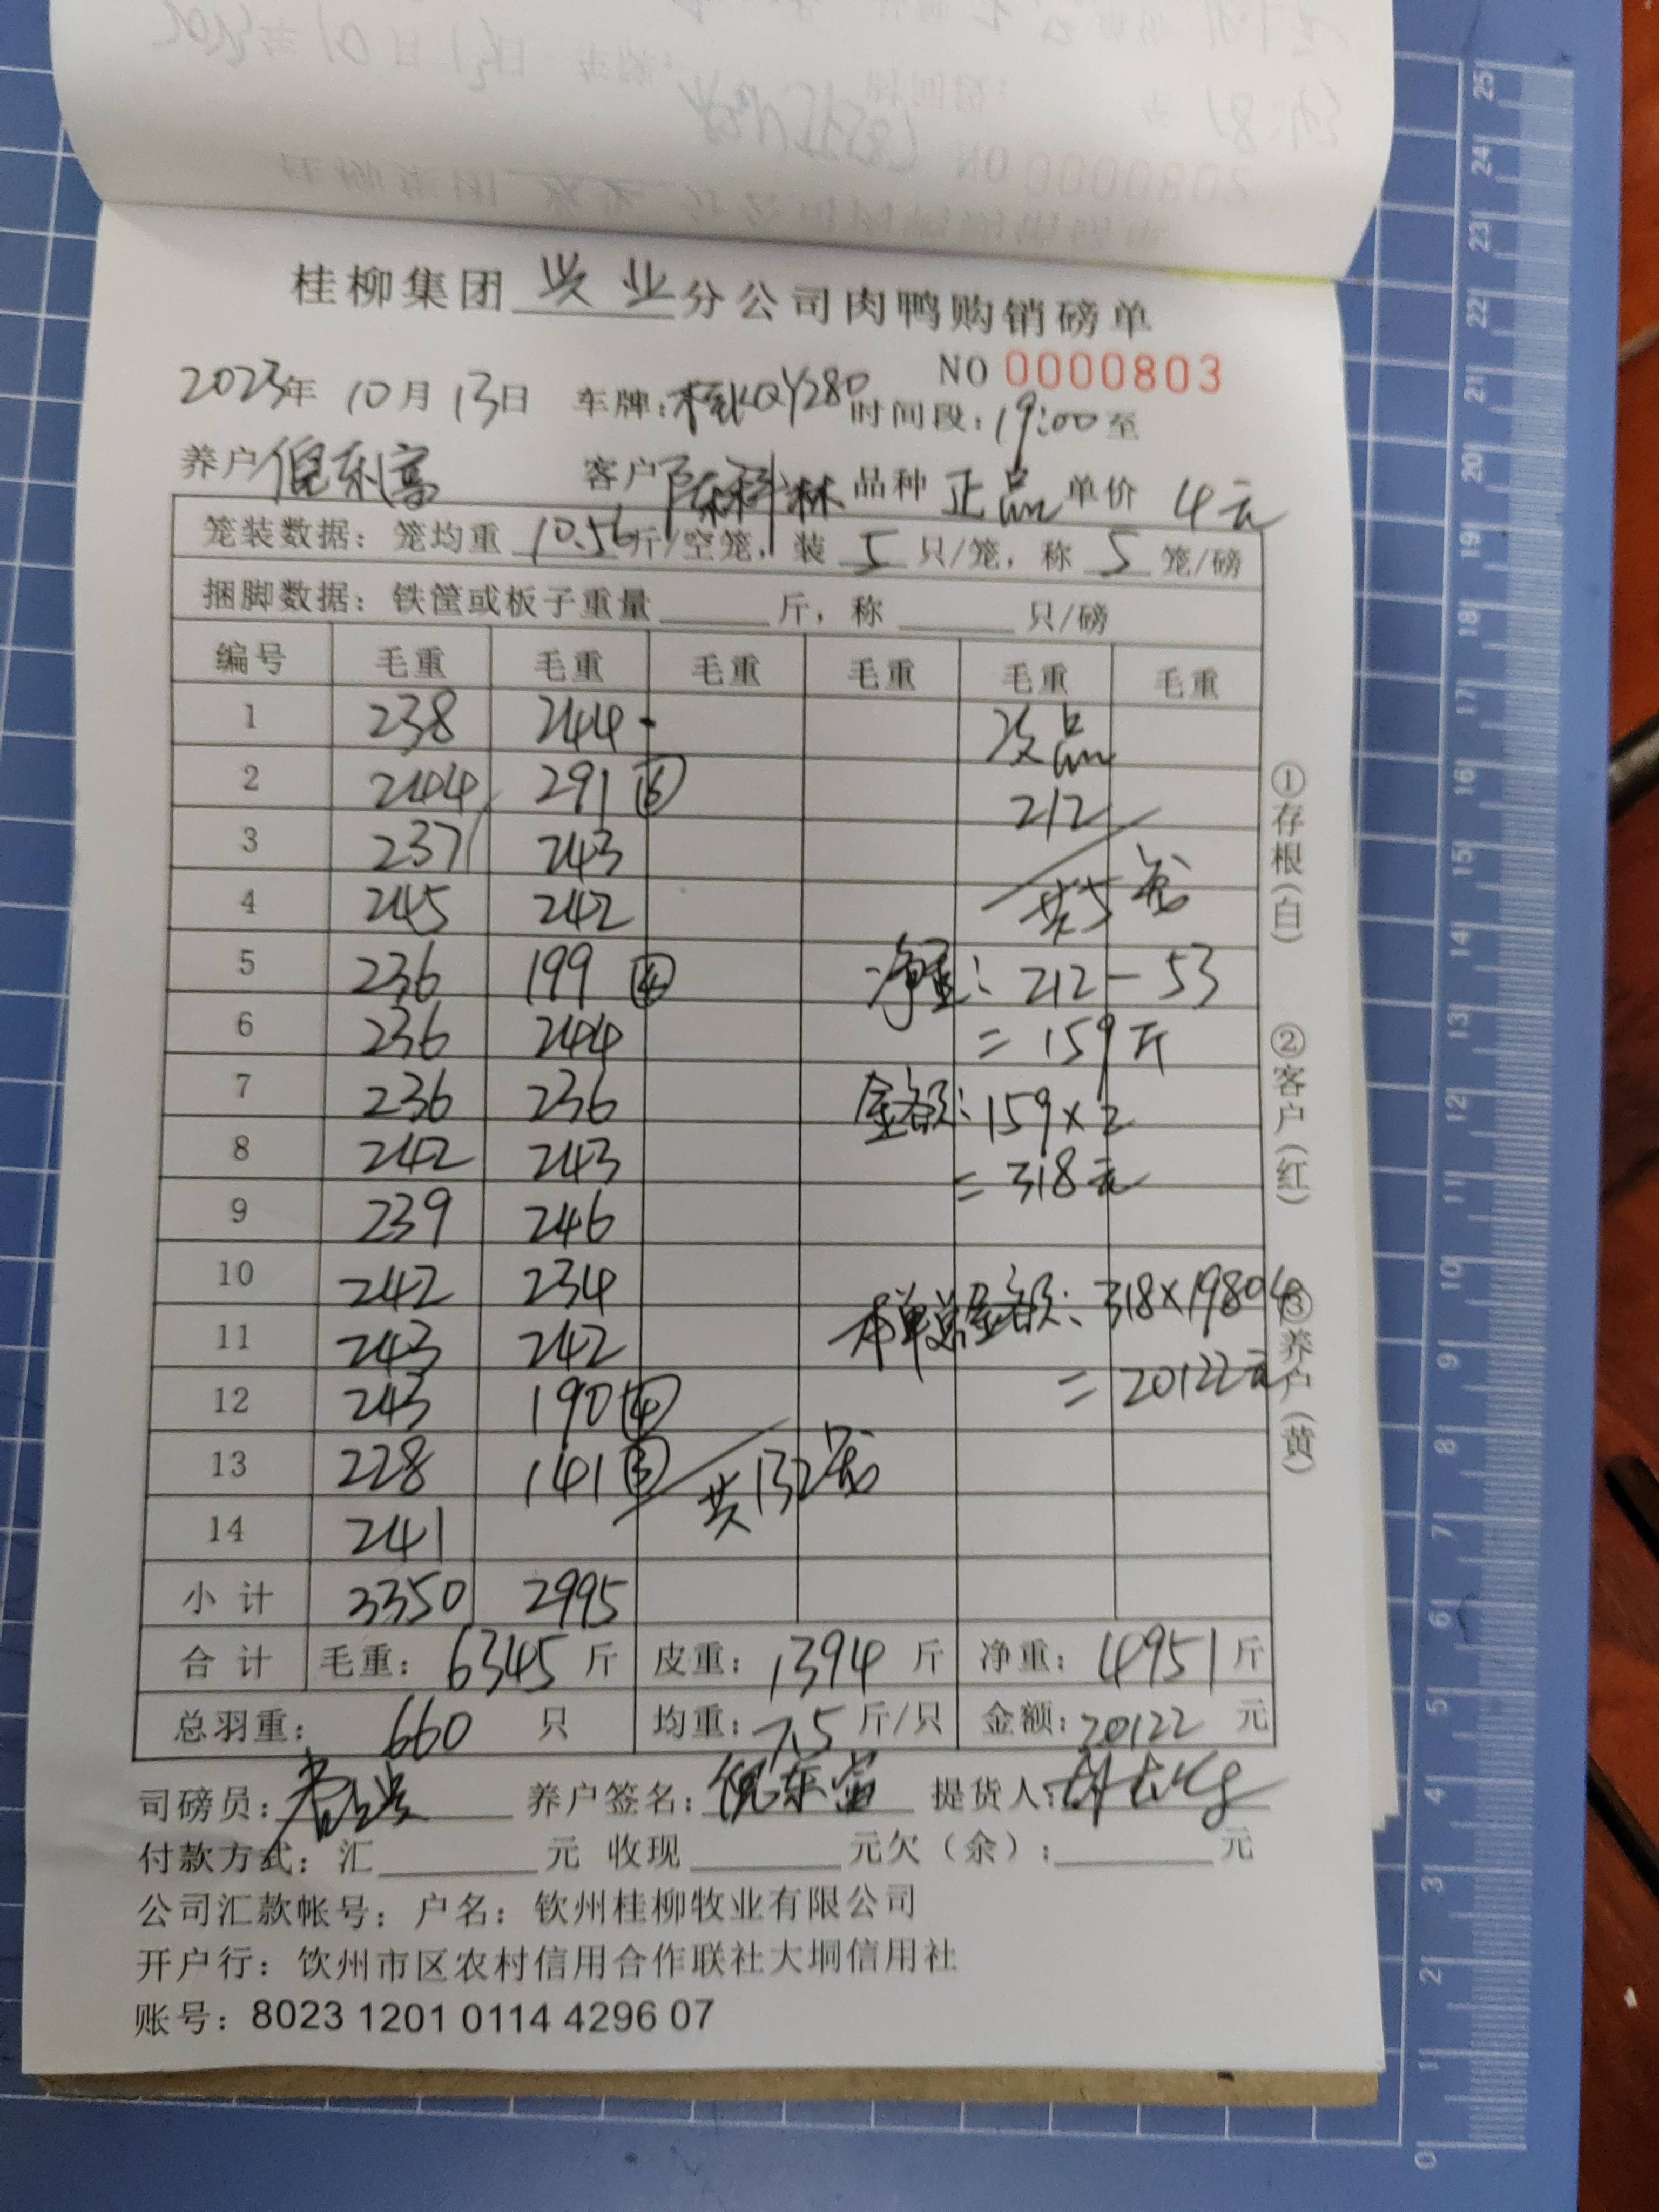 桂柳集团 兴业 分公司肉鸭购销磅单
NO 0000803
2023年 10月 13日 车牌:桂KQY280 时间段:19:00至
养户 倪东富 客户 陈科林 品种 正品 单价 4元
笼装数据: 笼均重 10.56 斤/空笼, 装 5 只/笼, 称 5 笼/磅
捆脚数据: 铁筐或板子重量 斤, 称 只/磅
编号 毛重 毛重 毛重 毛重 毛重 毛重
1 238 244 次品
2 244 291 ⑥ 212
3 237 243
4 245 242 共5笼
5 236 199 ④ 净重: 212-53
6 236 244 = 159斤
7 236 236 金额: 159×2
8 242 243 = 318元
9 239 246
10 242 234 本单总金额: 318×19804
11 243 242 = 20122元
12 243 190 ④
13 228 141 ③ 共132笼
14 241
小计 3350 2995
合计 毛重: 6345 斤 皮重: 1394 斤 净重: 4951 斤
总羽重: 660 只 均重: 7.5 斤/只 金额: 20122 元
司磅员: 养户签名: 倪东富 提货人:
付款方式: 汇 元 收现 元欠(余): 元
公司汇款帐号: 户名: 钦州桂柳牧业有限公司
开户行: 钦州市区农村信用合作联社大垌信用社
账号: 8023 1201 0114 4296 07
①存根(白)
②客户(红)
③养户(黄)